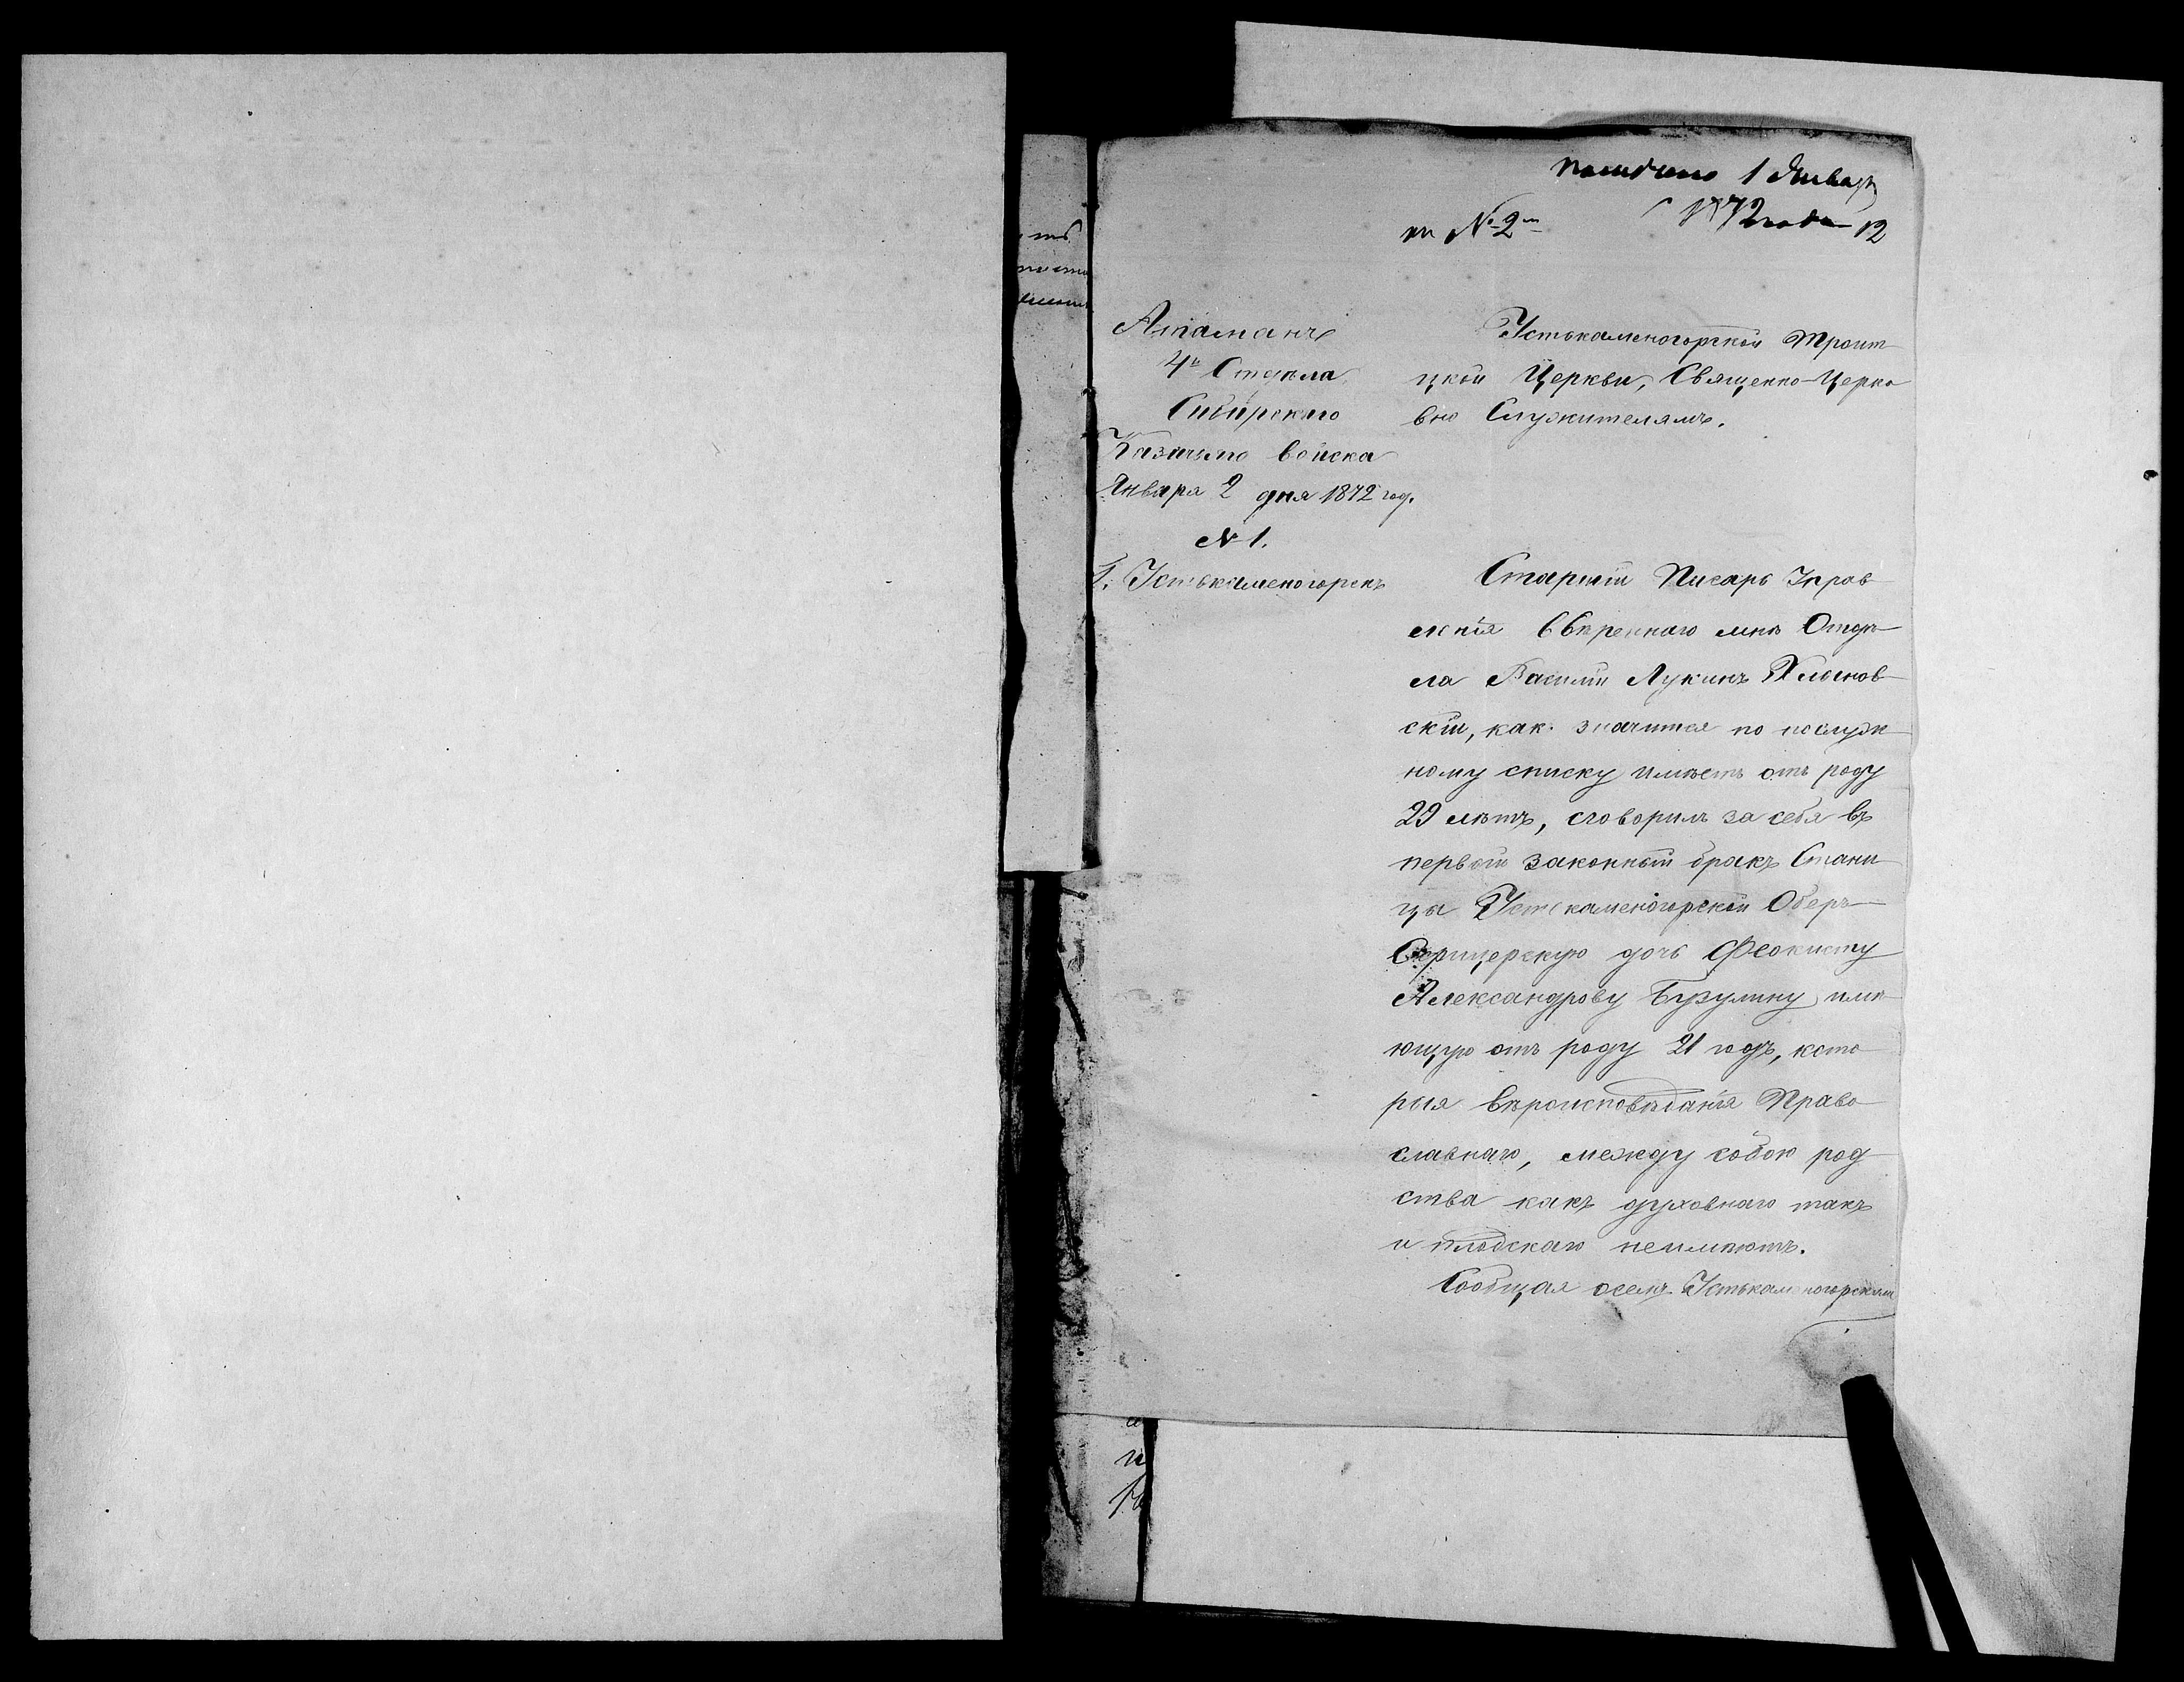 получено 1 Января
1872 года 12
къ № 2
Атаманъ
4го Отдѣла
Сибирскаго
Казачьяго войска
Января 2 дня 1872 год.
№ 1.
г. Устькаменогорскъ
Устькаменогорской Троит
цкой Церкви, Священно-Церко
вно Служителямъ.
Старшій Писарь Управ
ленія ввѣреннаго мнѣ Отдѣ
ла Василій Лукинъ Хлыновъ
скій, какъ значится по послуж
ному списку имѣетъ отъ роду
29 лѣтъ, сговорилъ за себя въ
первый законный бракъ Стани
цы Устькаменогорской Оберъ
Офицерскую дочь Феоктисту
Александрову Бузулину имѣ
ющую отъ роду 21 годъ, кото
рыя вѣроисповѣданія Право
славнаго, между собою род
ства какъ духовнаго такъ
и плотскаго неимѣютъ.
Сообщая о семъ Устькаменогорской